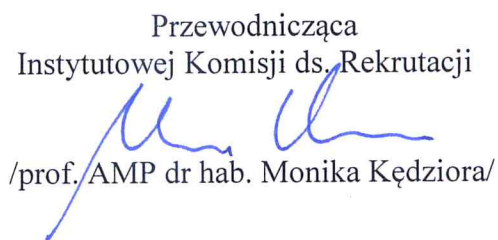 Przewodnicząca
Instytutowej Komisji ds. Rekrutacji
/prof. AMP dr hab. Monika Kędziora/